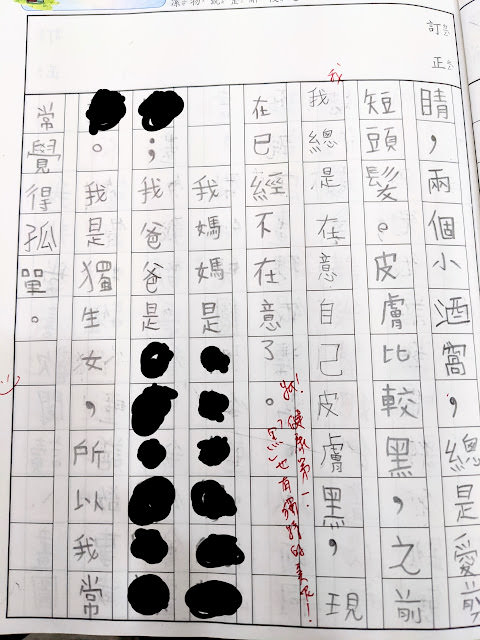 訂正
睛，兩個小酒窩，總是愛剪
短頭髮。皮膚比較黑，之前
我
我總是在意自己皮膚黑，現
在已經不在意了。
健康第一，
「黑」也有獨特的美
我媽媽是
；我爸爸是
。我是獨生女，所以我常
常覺得孤單。